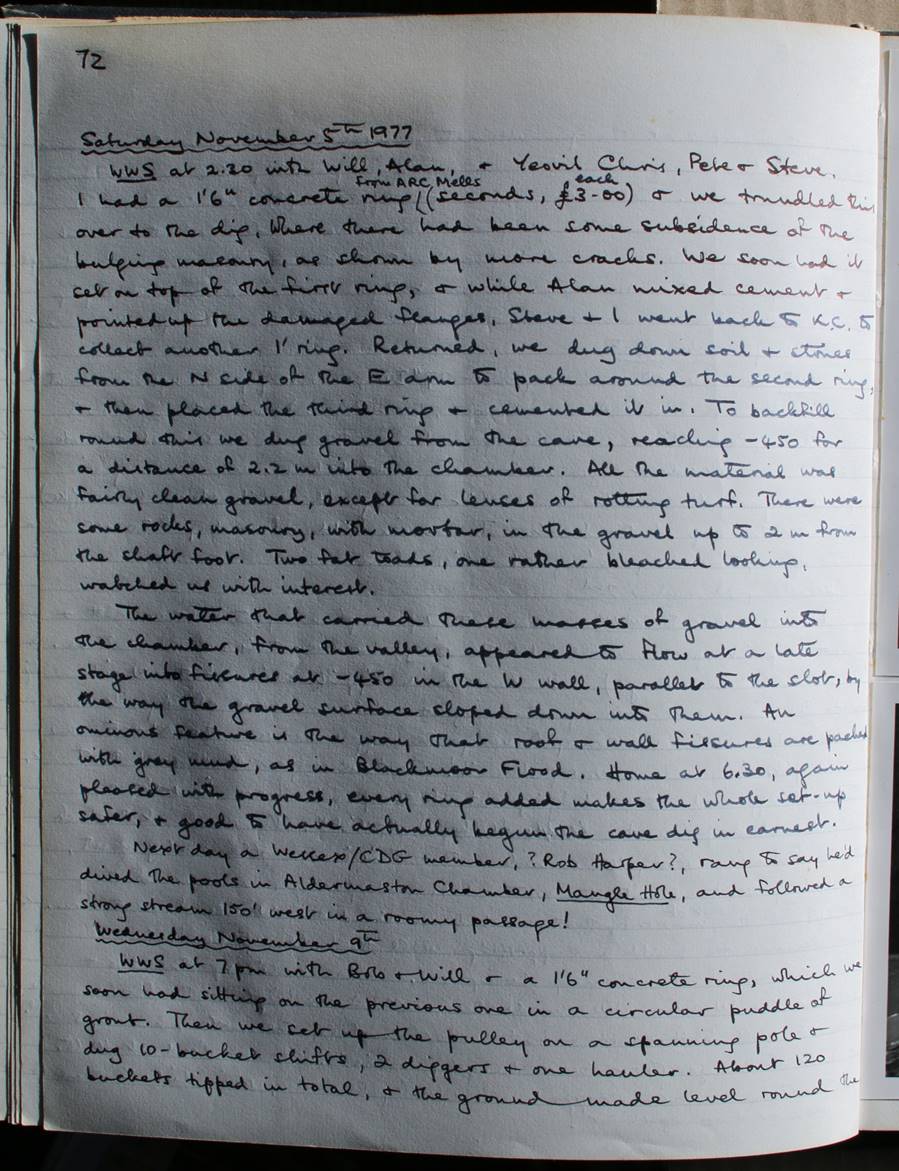 72
Saturday November 5th 1977
WWS at 2.30 with Will, Alan, + Yeovil Chris, Pete + Steve.
from ARC, Mells each
I had a 1'6" concrete ring ((seconds, £3-00) + we trundled this
over to the dig, where there had been some subsidence of the
bulging masonry, as shown by more cracks. We soon had it
set on top of the first ring, + while Alan mixed cement +
pointed up the damaged flanges, Steve + I went back to K.C. to
collect another 1' ring. Returned, we dug down soil + stones
from the N side of the E arm to pack around the second ring,
+ then placed the third ring + cemented it in. To backfill
round this we dug gravel from the cave, reaching -450 for
a distance of 2.2 m into the chamber. All the material was
fairly clean gravel, except for lenses of rotting turf. There were
some rocks, masonry, with mortar, in the gravel up to 2 m from
the shaft foot. Two fat toads, one rather bleached looking,
watched us with interest.
The water that carried these masses of gravel into
the chamber, from the valley, appeared to flow at a late
stage into fissures at -450 in the W wall, parallel to the slot, by
the way the gravel surface sloped down into them. An
ominous feature is the way that roof + wall fissures are packed
with grey mud, as in Blackmoor Flood. Home at 6.30, again
pleased with progress, every ring added makes the whole set-up
safer, + good to have actually begun the cave dig in earnest.
Next day a Wessex/CDG member, ?Rob Harper?, rang to say he'd
dived the pools in Aldermaston Chamber, Mangle Hole, and followed a
strong stream 150' west in a roomy passage!
Wednesday November 9th
WWS at 7 pm with Bob + Will + a 1'6" concrete ring, which we
soon had sitting on the previous one in a circular puddle of
grout. Then we set up the pulley on a spanning pole +
dug 10-bucket shifts, 2 diggers + one hauler. About 120
buckets tipped in total, + the ground made level round the